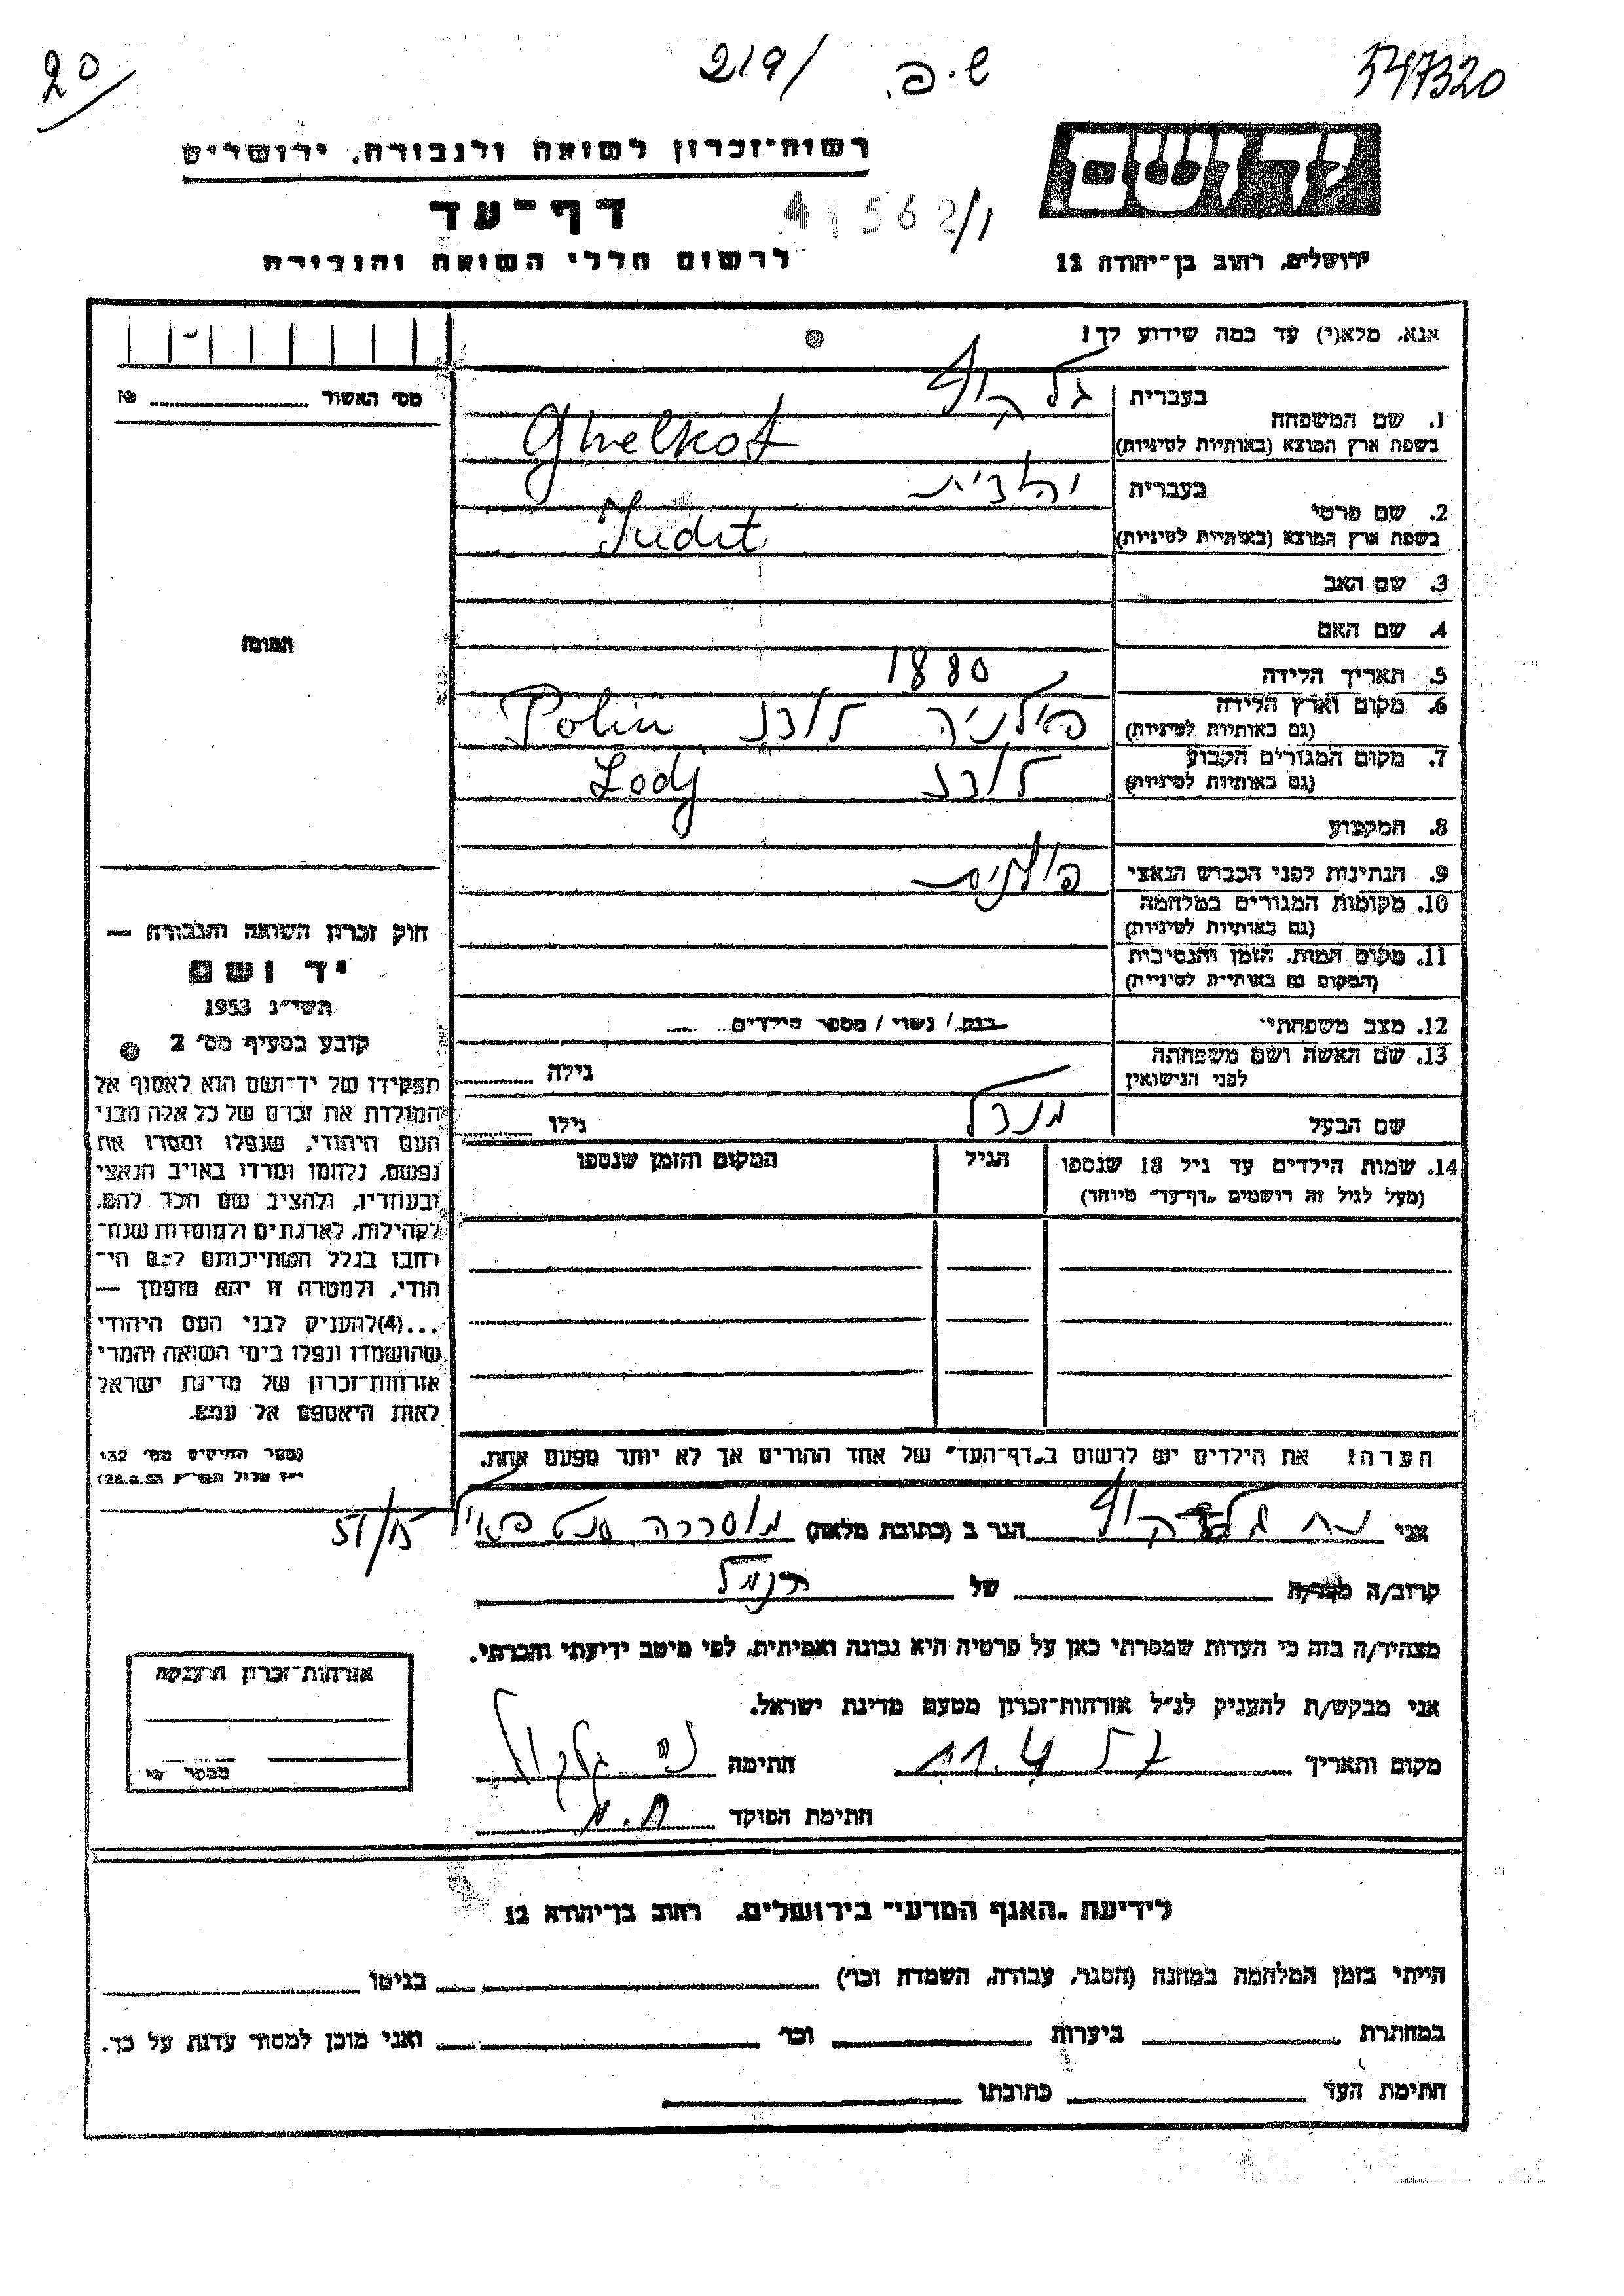 20/ 219/ ש.פ. 547320
רשות-זכרון לשואה ולגבורה, ירושלים
יד ושם
דף-עד
41562/1
לרשום חללי השואה והגבורה
ירושלים, רחוב בן-יהודה 12
אנא, מלא(י) עד כמה שידוע לך!
מס' האשור № 
1. שם המשפחה
בעברית גלקוף
בשפת ארץ המוצא (באותיות לטיניות) Ghelkof
2. שם פרטי
בעברית יהודית
בשפת ארץ המוצא (באותיות לטיניות) Judit
3. שם האב
4. שם האם
תמונה
5. תאריך הלידה 1880
6. מקום וארץ הלידה
(גם באותיות לטיניות) פולניה לודז Polin
7. מקום המגורים הקבוע
(גם באותיות לטיניות) לודז Lodj
8. המקצוע
9. הנתינות לפני הכבוש הנאצי פולנית
10. מקומות המגורים במלחמה
(גם באותיות לטיניות)
11. מקום המות, הזמן והנסיבות
(המקום גם באותיות לטיניות)
12. מצב משפחתי רווק / נשוי / מספר הילדים
13. שם האשה ושם משפחתה
לפני הנישואין גילה
שם הבעל מנדל גילו
14. שמות הילדים עד גיל 18 שנספו
(מעל לגיל זה רושמים "דף-עד" מיוחד)
הגיל
המקום והזמן שנספו
הערה: את הילדים יש לרשום ב"דף-העד" של אחד ההורים אך לא יותר מפעם אחת.
חוק זכרון השואה והגבורה —
יד ושם
תשי"ג 1953
קובע בסעיף מס' 2
תפקידו של יד-ושם הוא לאסוף אל
המולדת את זכרם של כל אלה מבני
העם היהודי, שנפלו ומסרו את
נפשם, נלחמו ומרדו באויב הנאצי
ובעוזריו, ולהציב שם וזכר להם,
לקהילות, לארגונים ולמוסדות שנח-
רבו בגלל השתייכותם לעם הי-
הודי, ולמטרה זו יהא מוסמך —
...(4)להעניק לבני העם היהודי
שהושמדו ונפלו בימי השואה והמרי
אזרחות-זכרון של מדינת ישראל
לאות היאספם אל עמם.
(ספר החוקים מס' 132
י"ז אלול תשי"ג 28.8.53)
אני נח גלקוף הגר ב (כתובת מלאה) מוסררה סנט פאול 51/15
קרוב/ה מכר/ה של
מצהיר/ה בזה כי העדות שמסרתי כאן על פרטיה היא נכונה ואמיתית, לפי מיטב ידיעתי והכרתי.
אני מבקש/ת להעניק לנ"ל אזרחות-זכרון מטעם מדינת ישראל.
מקום ותאריך 11.4.57 חתימה נח גלקוף
חתימת הפוקד
אזרחות-זכרון הוענקה
לידיעת "האגף המדעי" בירושלים, רחוב בן-יהודה 12
הייתי בזמן המלחמה במחנה (הסגר, עבודה, השמדה וכו') בגיטו
במחתרת ביערות וכו' ואני מוכן למסור עדות על כך.
חתימת העד כתובתו